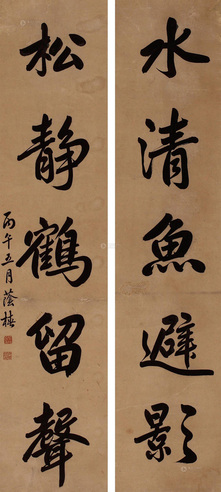 水清魚避影
松静鶴留聲
丙午五月蔭椿